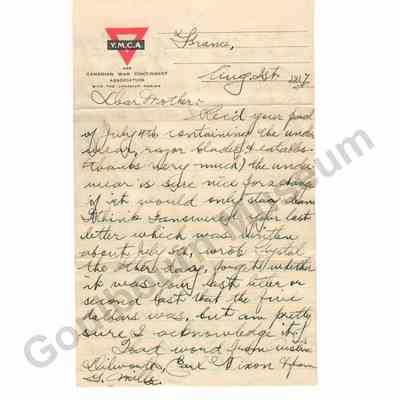 Y.M.C.A
AND
CANADIAN WAR CONTINGENT
ASSOCIATION
WITH THE CANADIAN FORCES
France,
Aug. 1st 1917
Dear Mother:-
Rec'd your pcl
of July 4th containing the under
wear, razor blades & eatables
thanks very much, the under
wear is sure nice for a change
if it would only stay clean
I think I answered your last
letter which was written
about July 5th, wrote Crystal
the other day, forget whether
it was your last letter or
second last that the five
dollars was, but am pretty
sure I acknowledge it,
Had word from
Dilworth, Earl Nixon & from
G. Mills.
Gomboc Museum